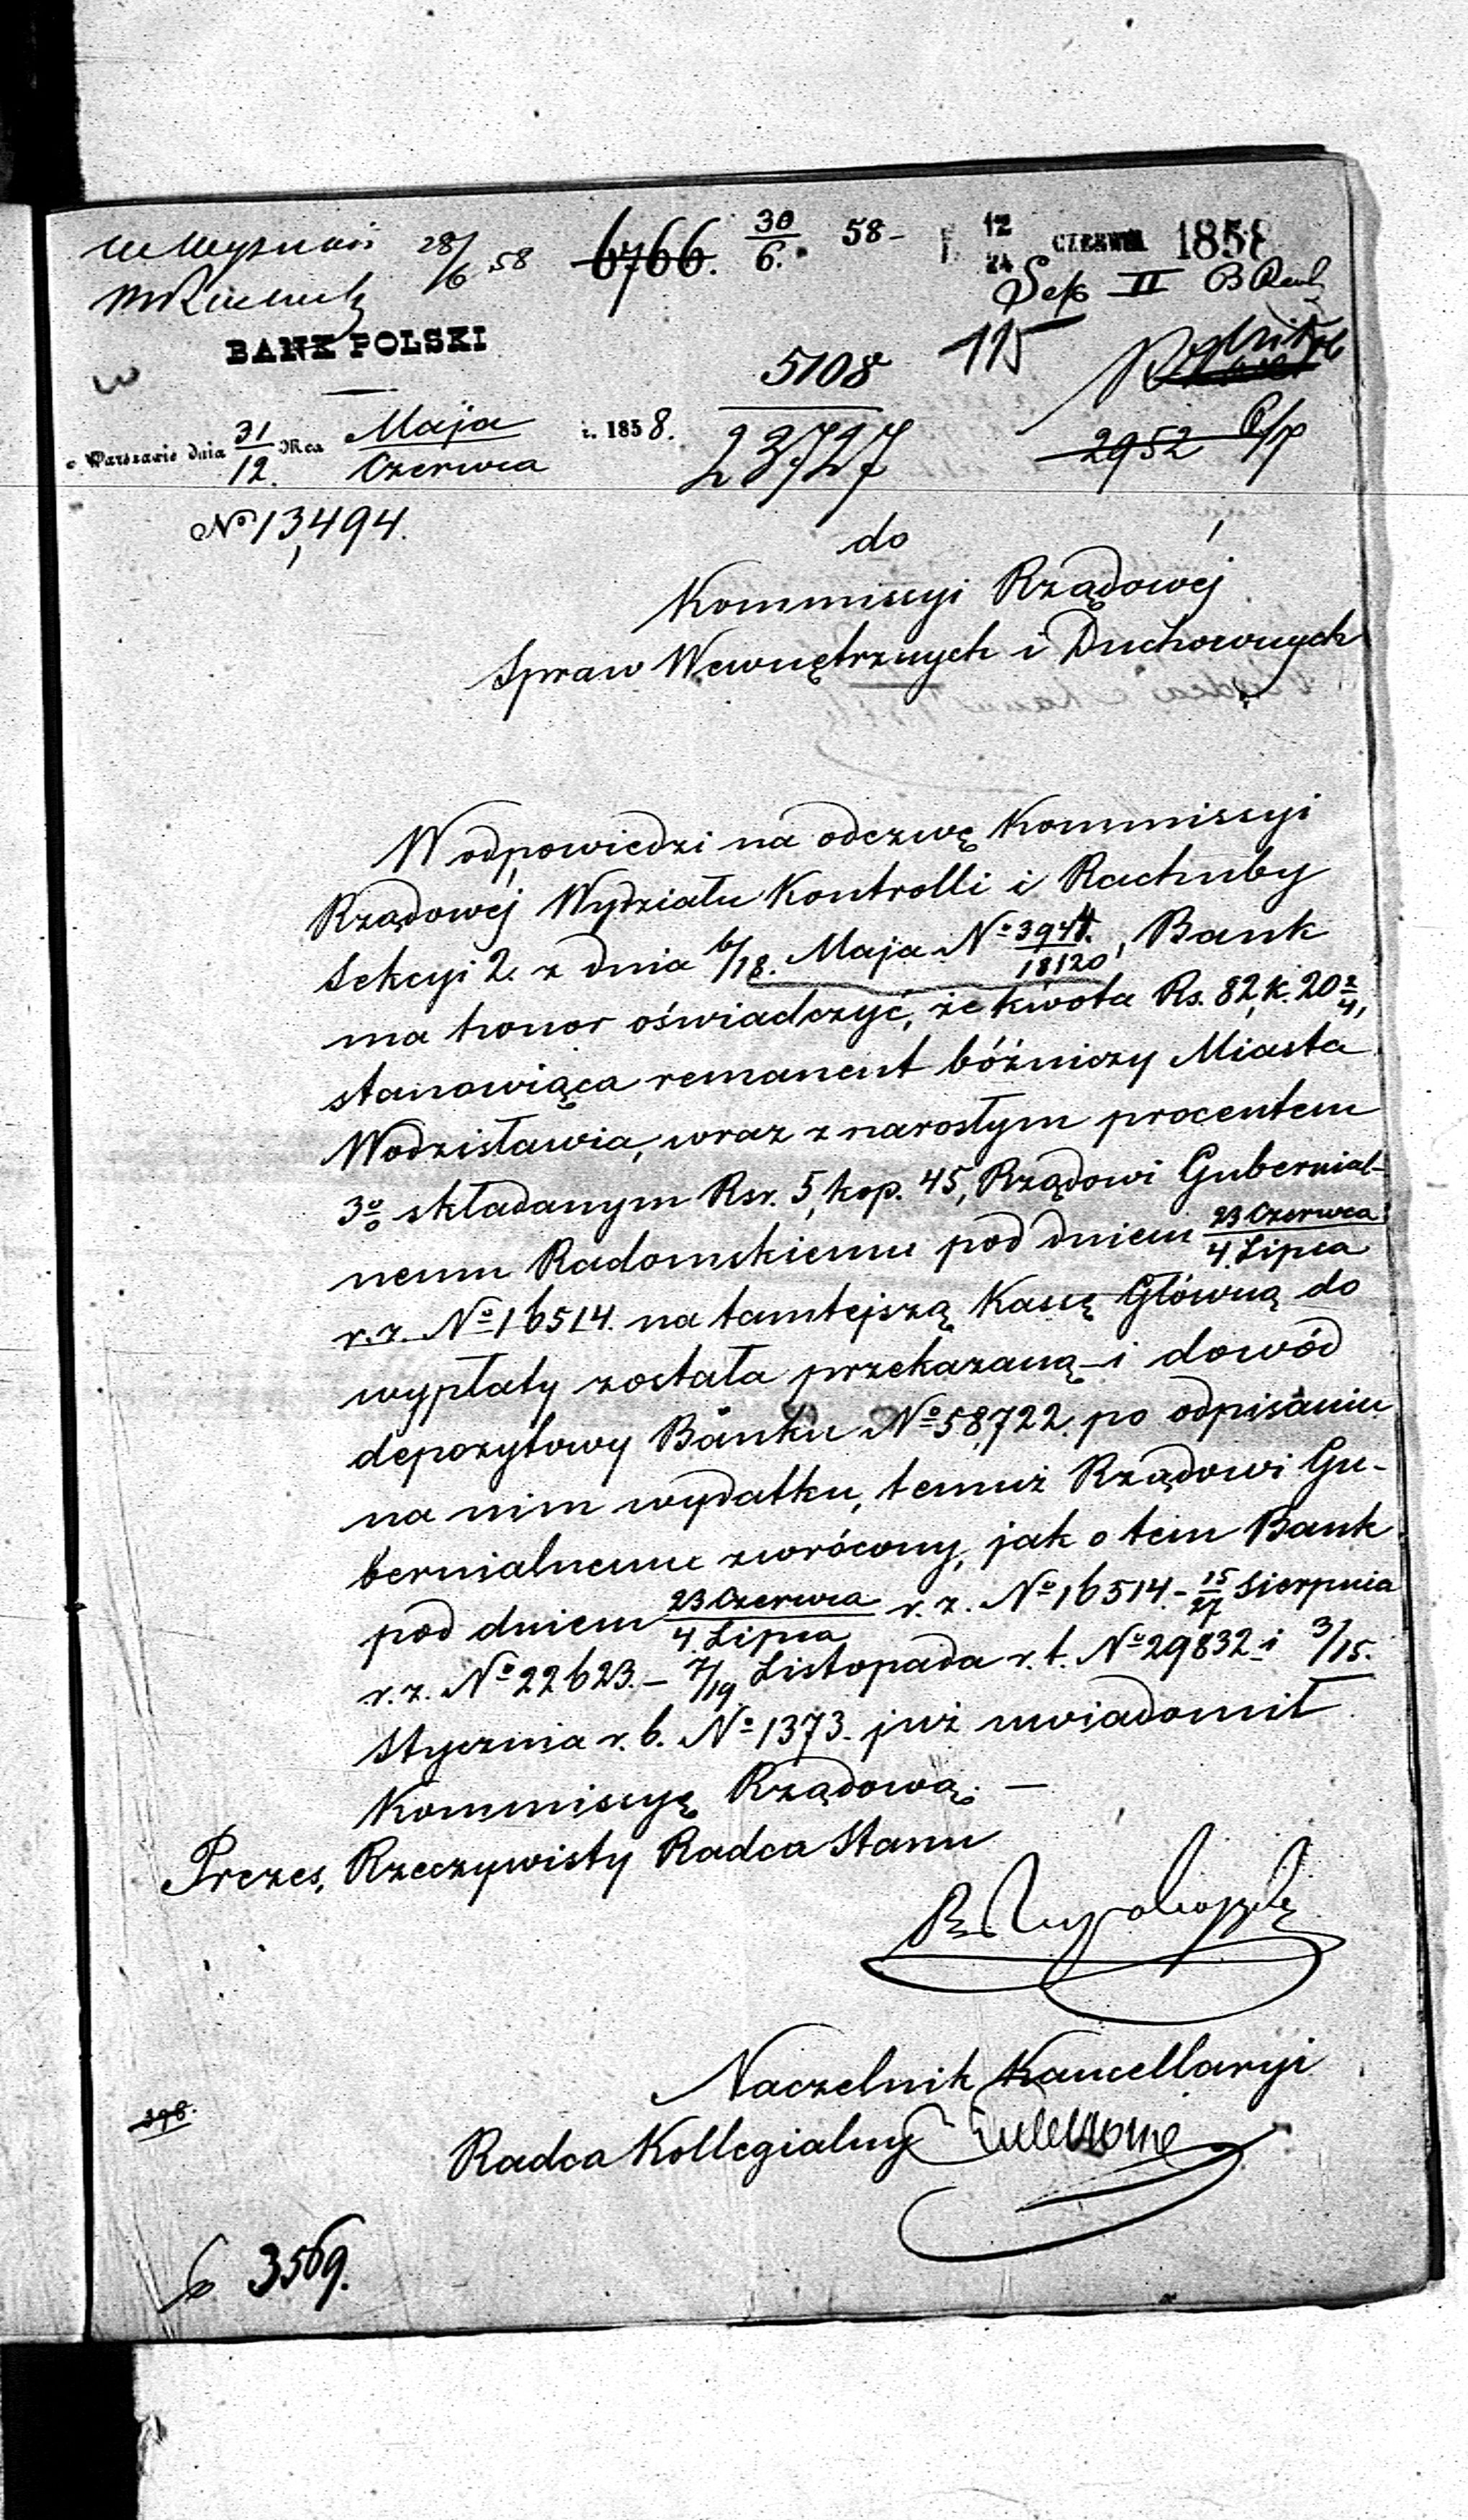 28/6 58 6766. 30/6. 58 - 12/24 CZERWCA 1858
Sek II
BANK POLSKI
115
5108
w Warszawie dnia 31/12. Mca Maja/Czerwca r. 1858.
23727
2952
No 13,494.
do
Kommissyi Rządowéj
Spraw Wewnętrznych i Duchownych
W odpowiedzi na odezwę Kommissyi
Rządowéj Wydziału Kontrolli i Rachuby
Sekcyi 2. z dnia 6/18. Maja No 3944./18120, Bank
ma honor oświadczyć, że kwota Rs. 82, k. 20 2/4,
stanowiąca remanent bóźniczy Miasta
Wodzisławia, wraz z narosłym procentem
3% składanym Rsr. 5, kop. 45, Rządowi Gubernial-
nemu Radomskiemu pod dniem 23 Czerwca/4. Lipca
r. z. No 16514. na tamtejszą Kassę Główną do
wypłaty została przekazaną - i dowód
depozytowy Banku No 58,722. po odpisaniu
na nim wydatku, temuż Rządowi Gu-
bernialnemu zwrócony, jak o tem Bank
pod dniem 23 Czerwca/4. Lipca r. z. No 16514. - 15/27 Sierpnia
r. z. No 22623. - 7/19 Listopada r. t. No 29832 i 3/15.
Stycznia r. b. No 1373. już uwiadomił
Kommissyę Rządową. -
Prezes, Rzeczywisty Radca Stanu
Naczelnik Kancellaryi
Radca Kollegialny
398.
3569.